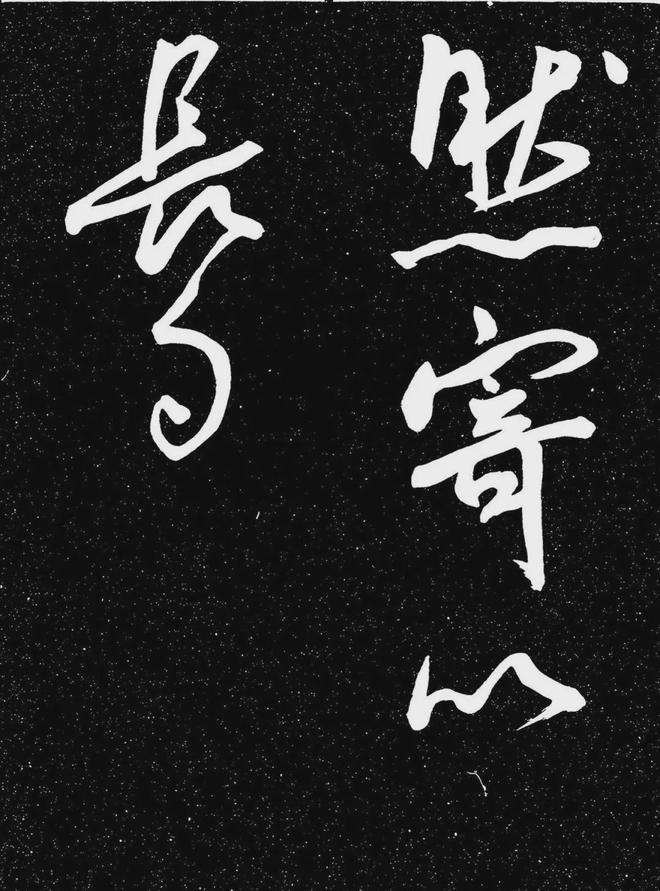 然寄以
長